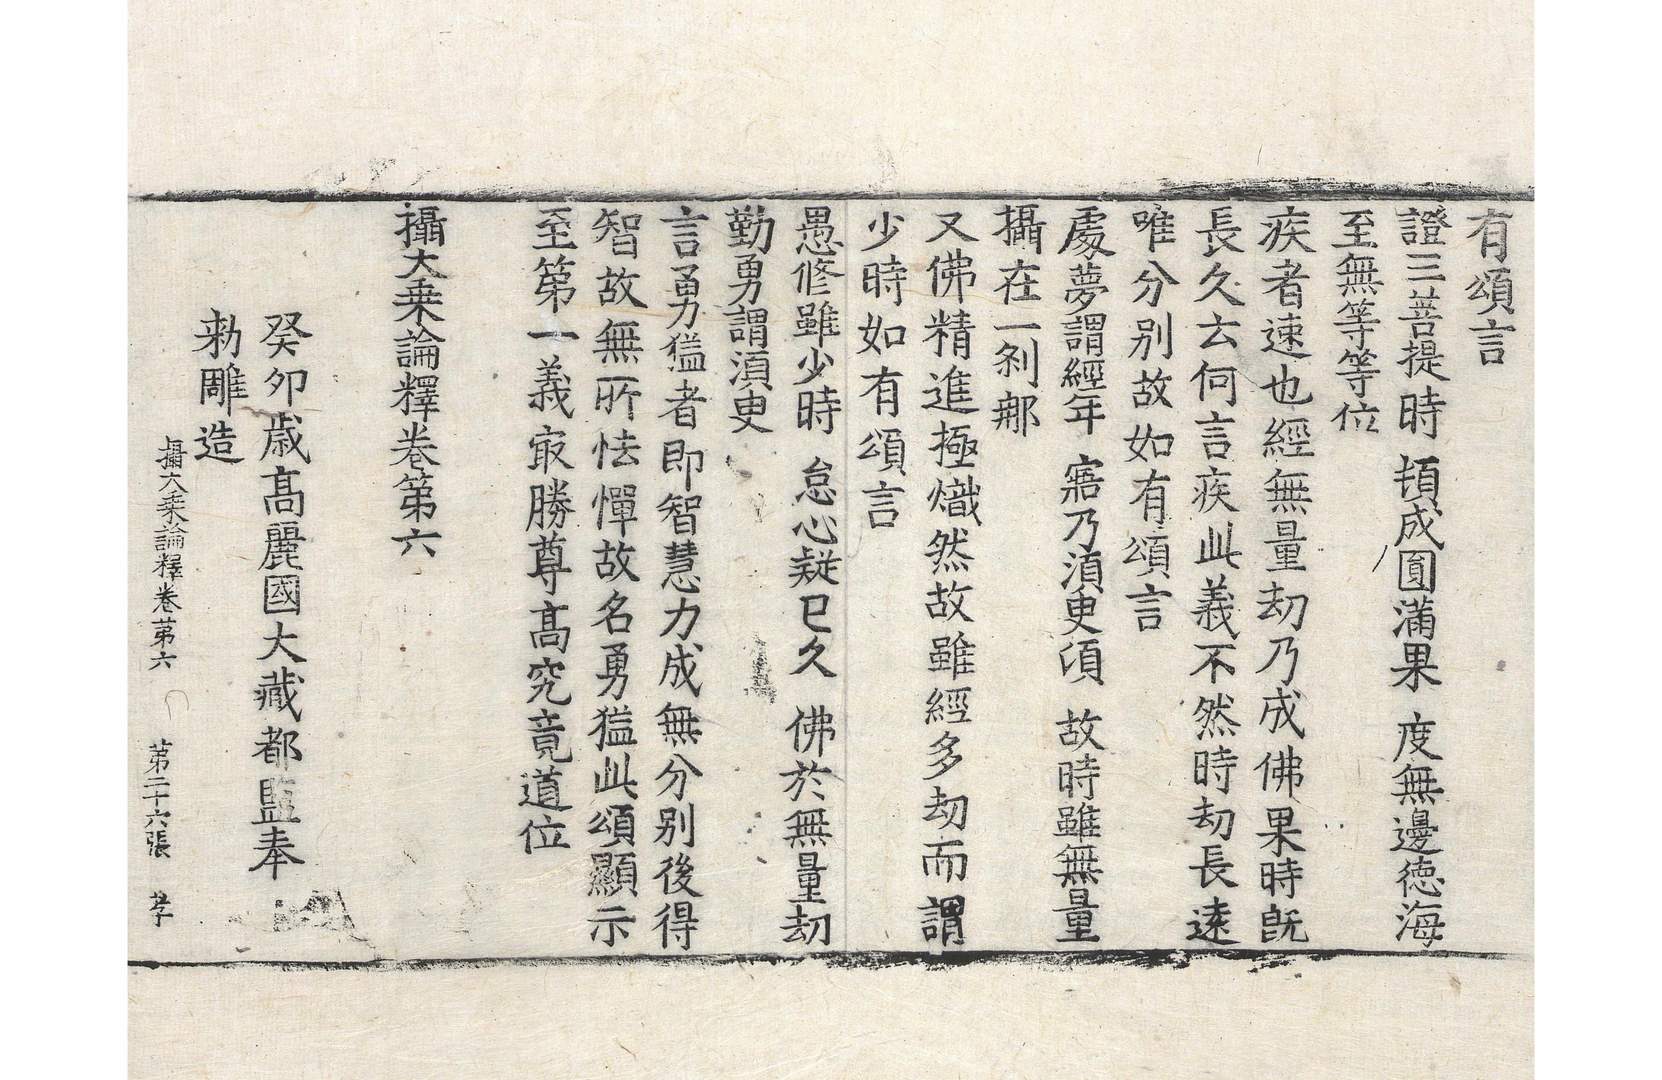 有頌言
證三菩提時 頓成圎滿果 度無邊德海
至無等等位
疾者速也經無量劫乃成佛果時旣
長久云何言疾此義不然時劫長遠
唯分别故如有頌言
處夢謂經年 寤乃湏臾頃 故時雖無量
攝在一刹郍
又佛精進極熾然故雖經多劫而謂
少時如有頌言
愚修雖少時 怠心疑已久 佛於無量劫
勤勇謂湏臾
言勇猛者即智慧力成無分别後得
智故無所怯憚故名勇猛此頌顯示
至第一義㝡勝尊髙究竟道位
攝大乗論釋卷第六
癸卯歳髙麗國大藏都監奉
勑雕造
攝大乗論釋卷第六 第二十六張 孝